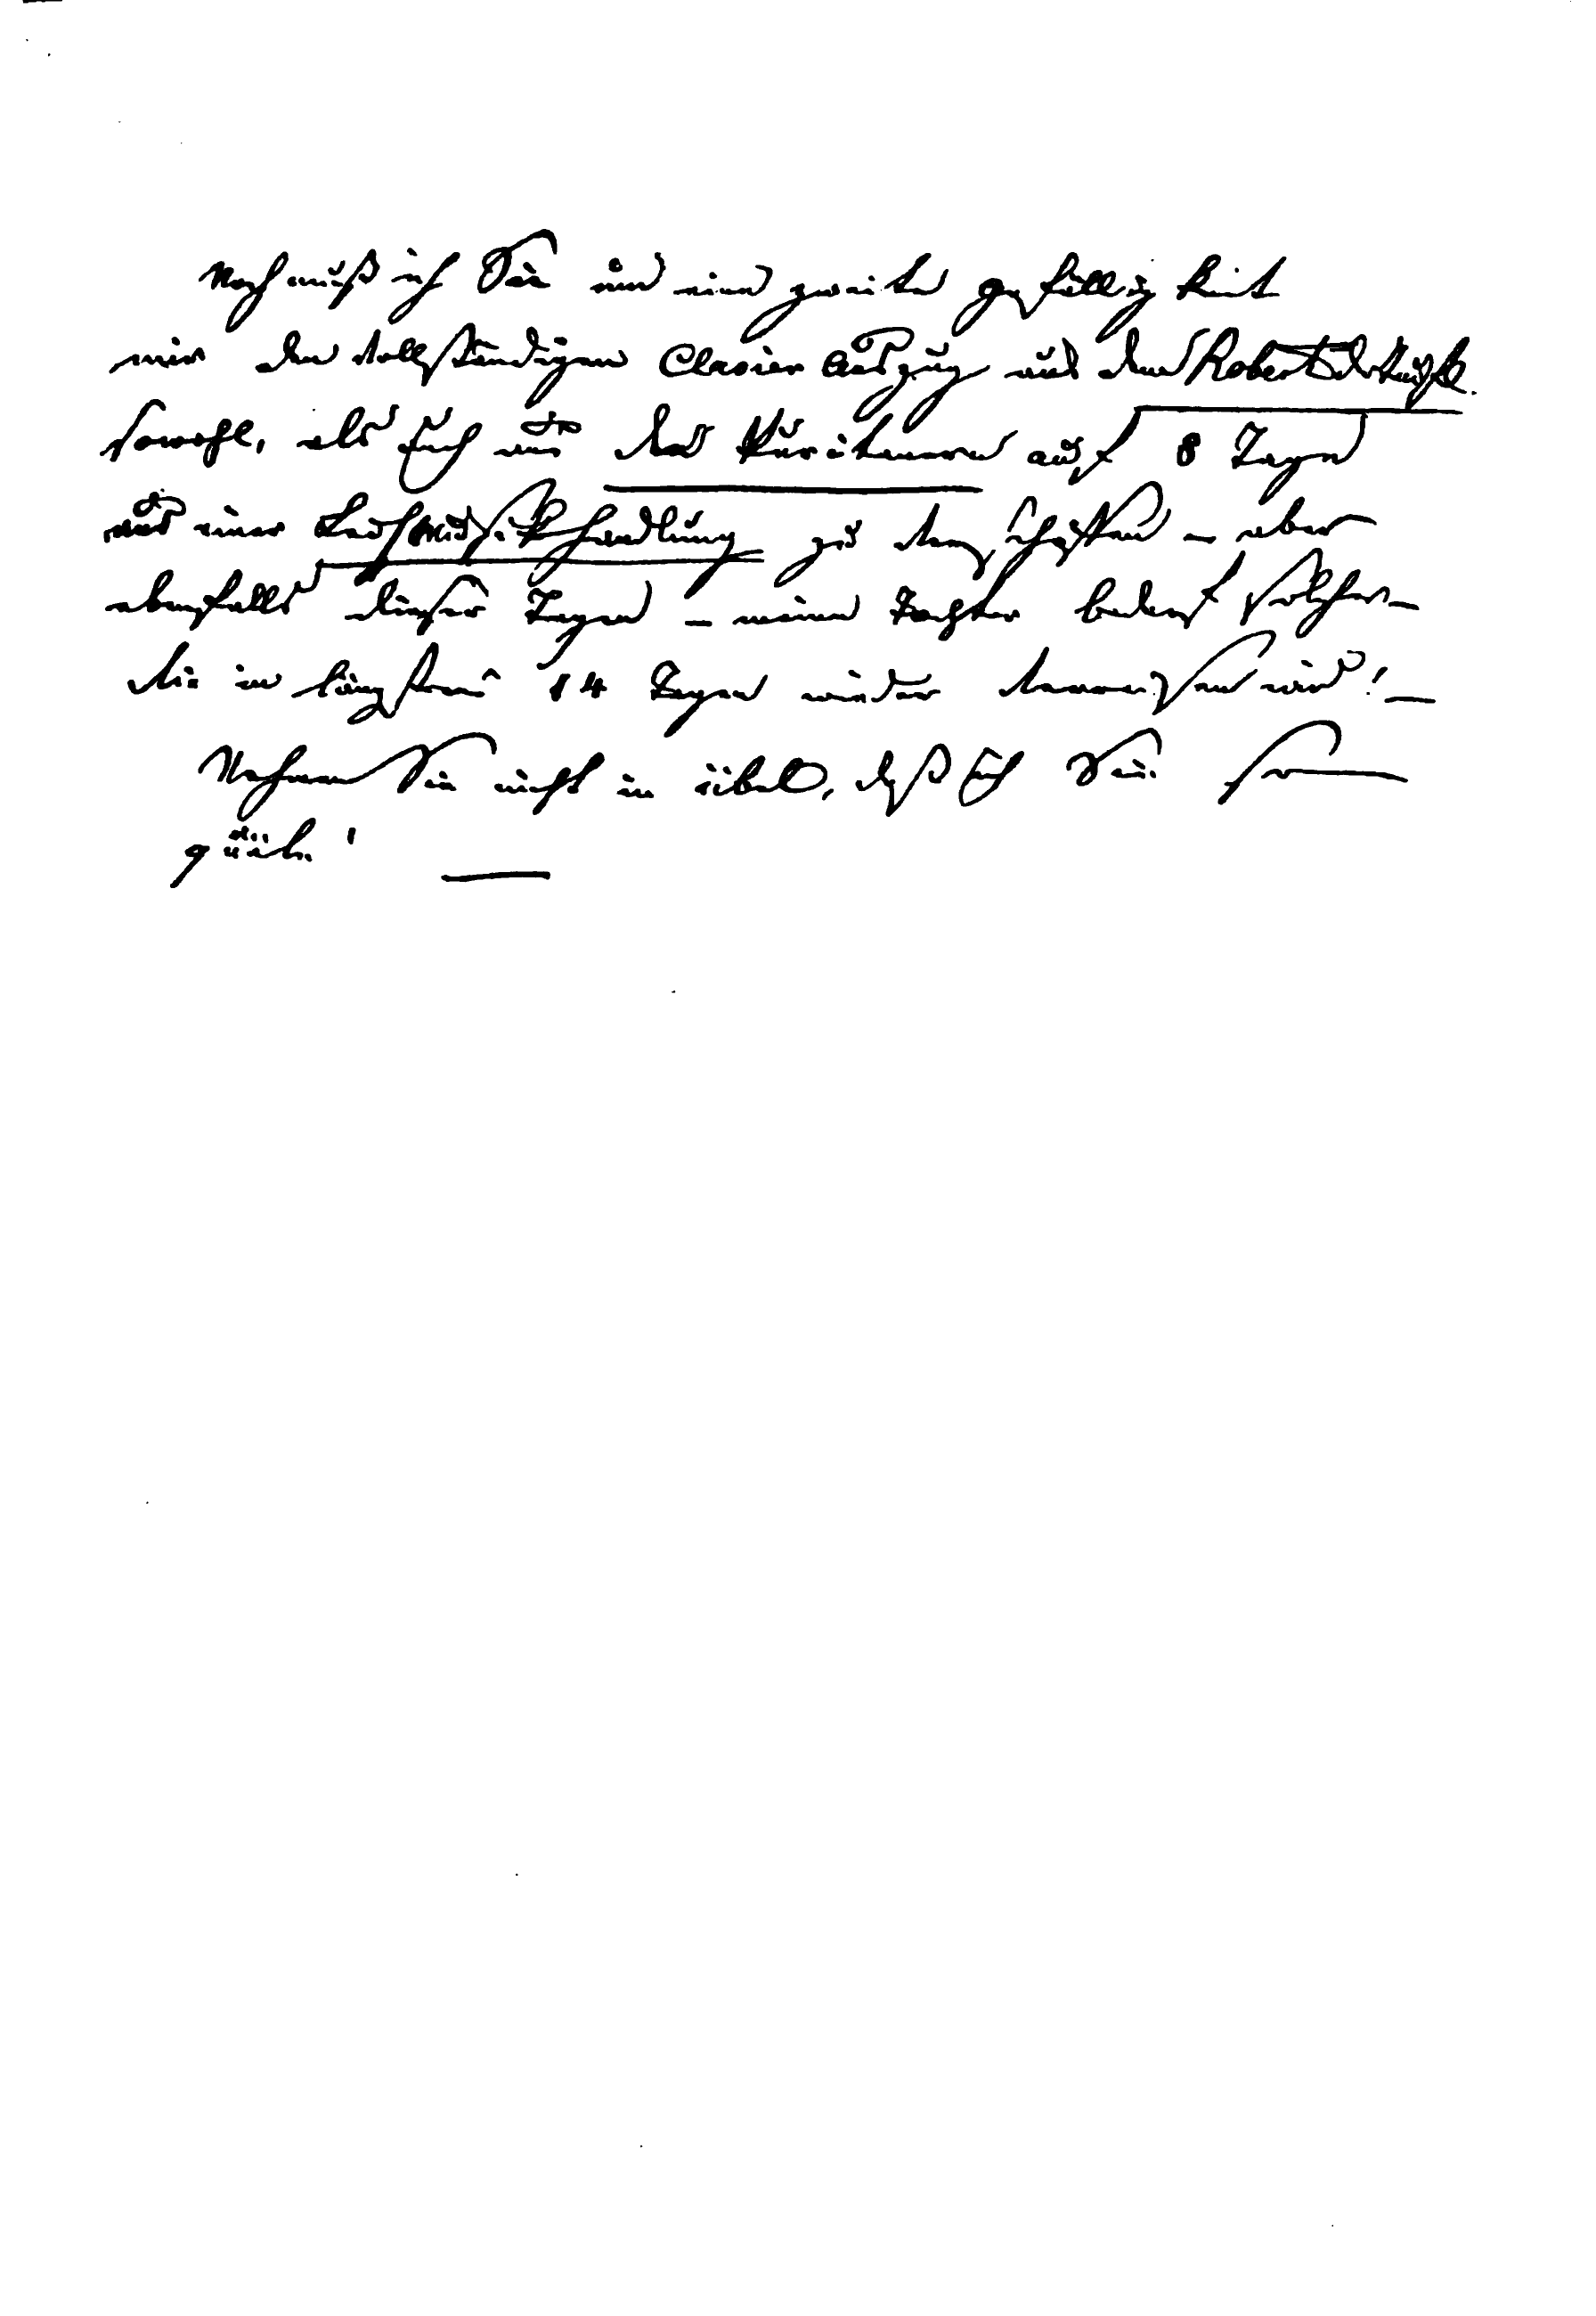 Noch muß ich Sie um eine zweite Gefälligkeit
mir den vollständigen Clavier Auszug aus dem Robert d. Teufel
sowohl, als auch aus den Puritanern auf 8 Tage
aus einer Leihmusikhandlung zu verschaffen – aber
ebenfalls dieser Tage – meine Tochter bedarf solcher –
die in längstens 14 Tagen wieder verreisen wird! –
Nehmen Sie nicht in übel, daß ich Sie so
quäle! —